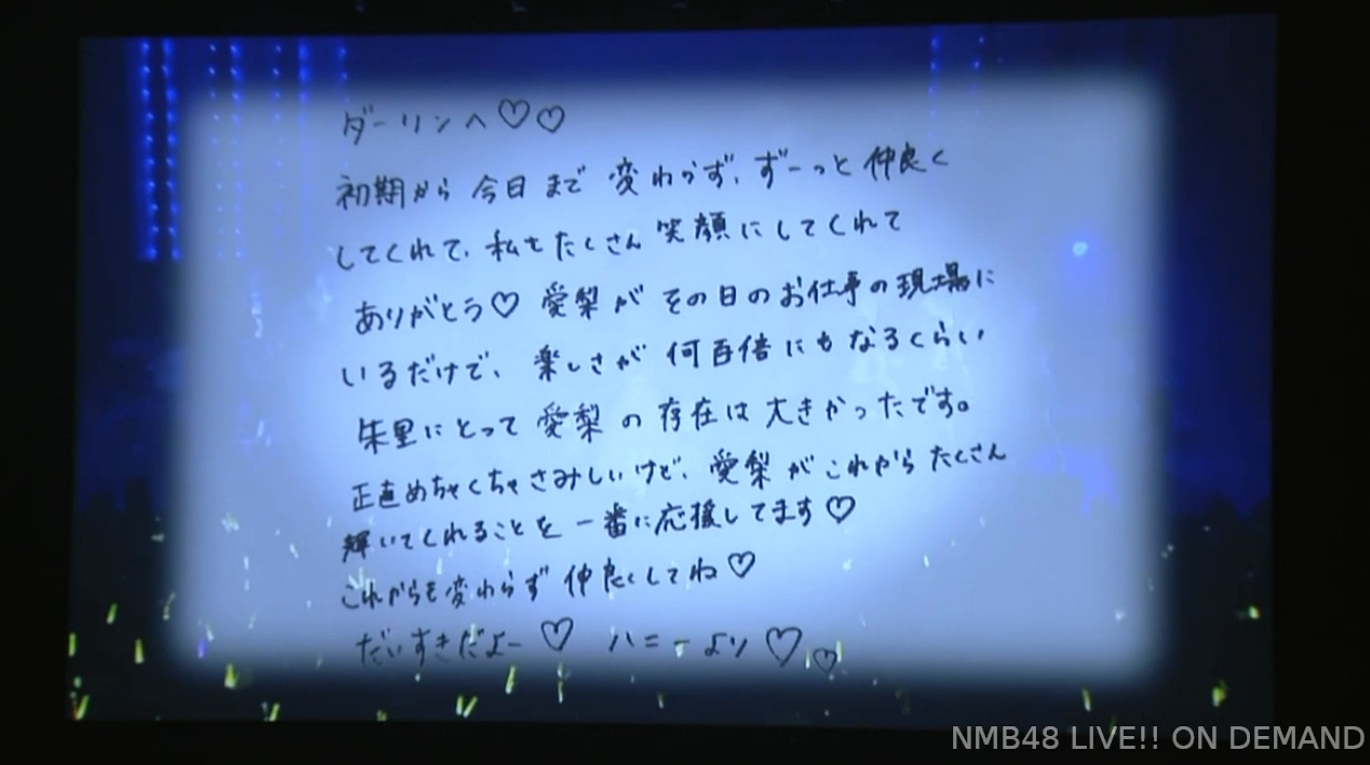 ダーリンへ♡♡
初期から今日まで変わらず、ずーっと仲良く
してくれて、私もたくさん笑顔にしてくれて
ありがとう♡ 愛梨がその日のお仕事の現場に
いるだけで、楽しさが何百倍にもなるくらい
朱里にとって愛梨の存在は大きかったです。
正直めちゃくちゃさみしいけど、愛梨がこれからたくさん
輝いてくれることを一番に応援してます♡
これからも変わらず仲良くしてね♡
だいすきだよー♡ ハニーより♡♡
NMB48 LIVE!! ON DEMAND